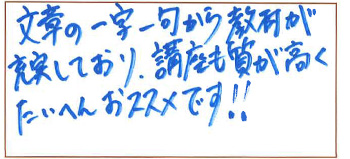 文章の一字一句から教材が
充実しており、講座も質が高く
たいへんおススメです!!